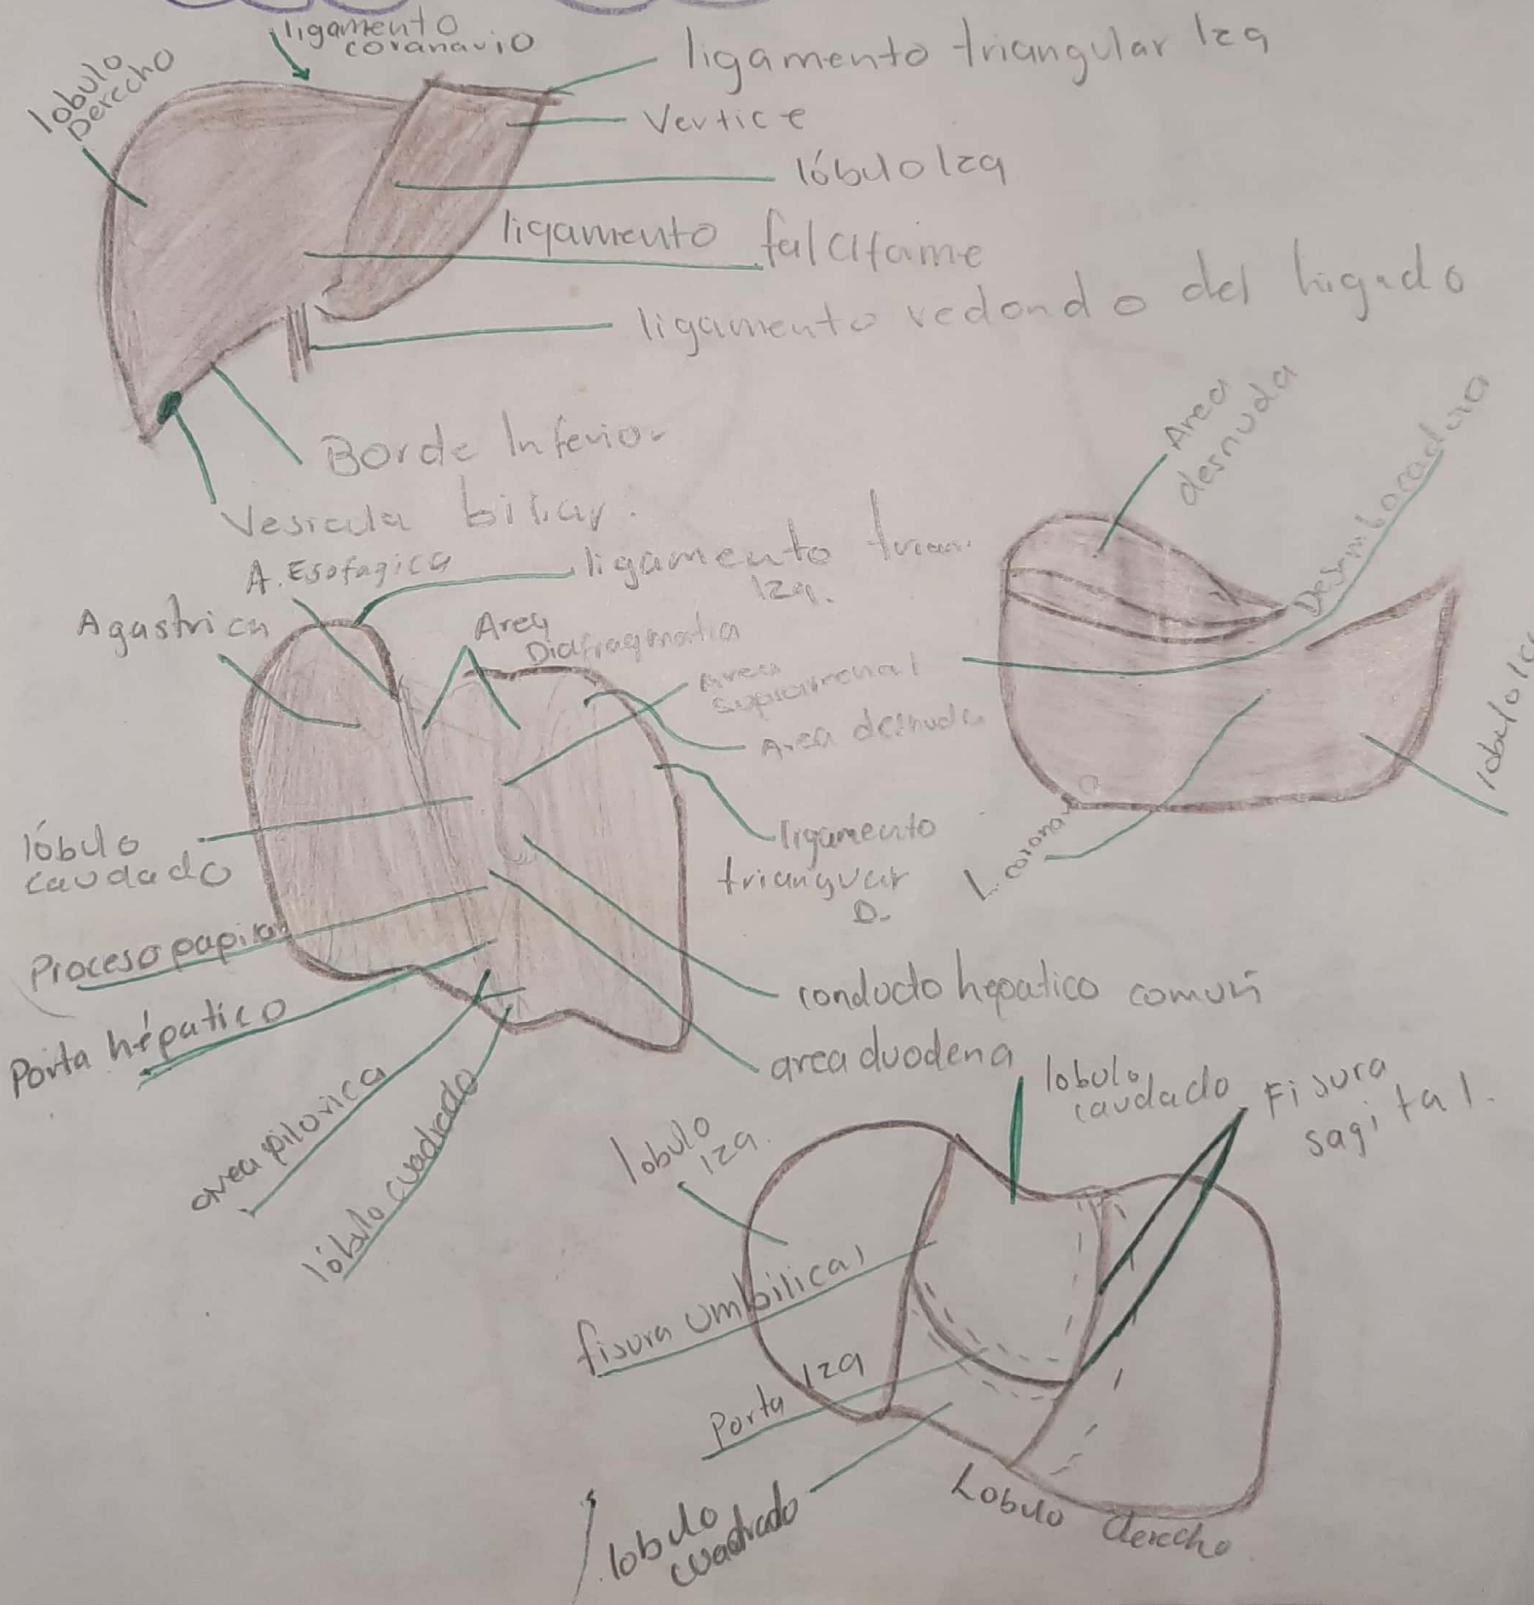 ligamento
coranavio
lobulo
Derecho
ligamento triangular Izq
Vertice
lóbulo Izq
ligamento falcifame
ligamento redondo del higado
Borde Inferior
Vesicula biliar.
Area
desnuda
Desembocadura
L. coronario
A. Esofagica
ligamento trian.
Izq.
Agastrica
Area
Diafragmatia
area
suprarrenal
Area desnuda
ligamento
trianguar
D.
lóbulo
caudado
Proceso papilar
Porta hépatico
area pilorica
lóbulo cuadrado
conducto hepatico comun
area duodena
lobulo
caudado
Fisura
sagital.
lobulo
Izq.
fisura umbilical
Porta Izq
lobulo
cuadrado
Lobulo derecho